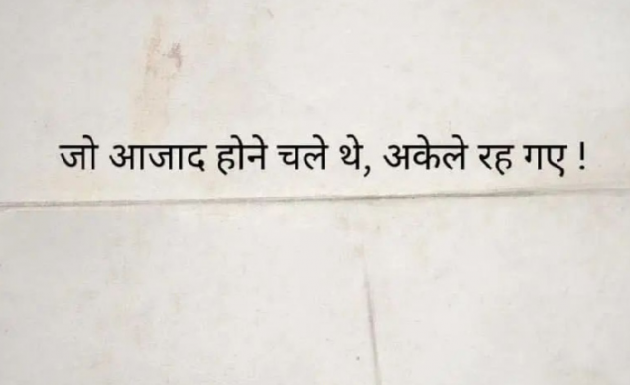 जो आजाद होने चले थे, अकेले रह गए !